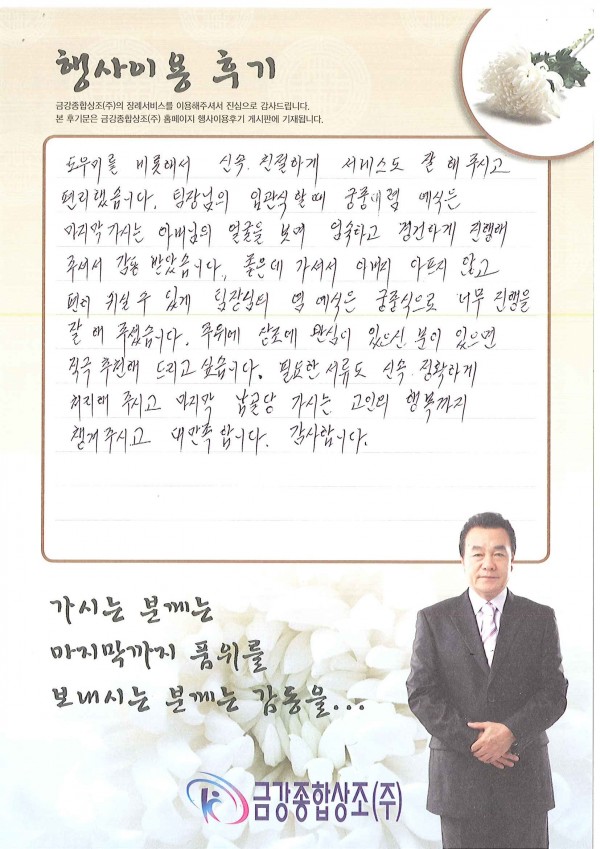 행사이용 후기
금강종합상조(주)의 장례서비스를 이용해주셔서 진심으로 감사드립니다.
본 후기문은 금강종합상조(주) 홈페이지 행사이용후기 게시판에 기재됩니다.
도우미를 비롯해서 신속·친절하게 서비스도 잘 해 주시고
편리했습니다. 팀장님의 입관식 할때 궁중대렴 예식은
마지막 가시는 아버님의 얼굴을 보며 엄숙하고 경건하게 진행해
주셔서 감동 받았습니다. 좋은데 가셔서 아버지 아프지 않고
편히 쉬실 수 있게 팀장님의 염 예식은 궁중식으로 너무 진행을
잘 해 주셨습니다. 주위에 상조에 관심이 있으신 분이 있으면
적극 추천해 드리고 싶습니다. 필요한 서류도 신속·정확하게
처리해 주시고 마지막 납골당 가시는 고인의 행복까지
챙겨주시고 대만족 합니다. 감사합니다.
가시는 분께는
마지막까지 품위를
보내시는 분께는 감동을...
금강종합상조(주)